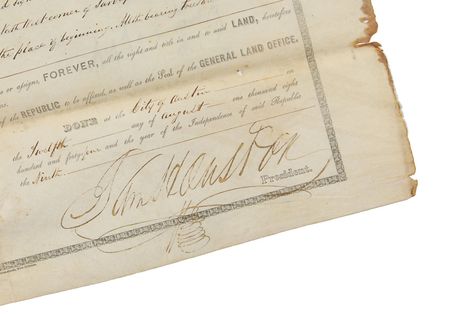 North West corner of
the place of beginning.
or assigns, FOREVER, all the right and title in and to said LAND, heretofore
of the REPUBLIC to be affixed, as well as the Seal of the GENERAL LAND OFFICE.
DONE at the City of Austin on
the Twelfth day of August one thousand eight
hundred and forty four and the year of the Independence of said Republic
the Ninth
Sam Houston
President.